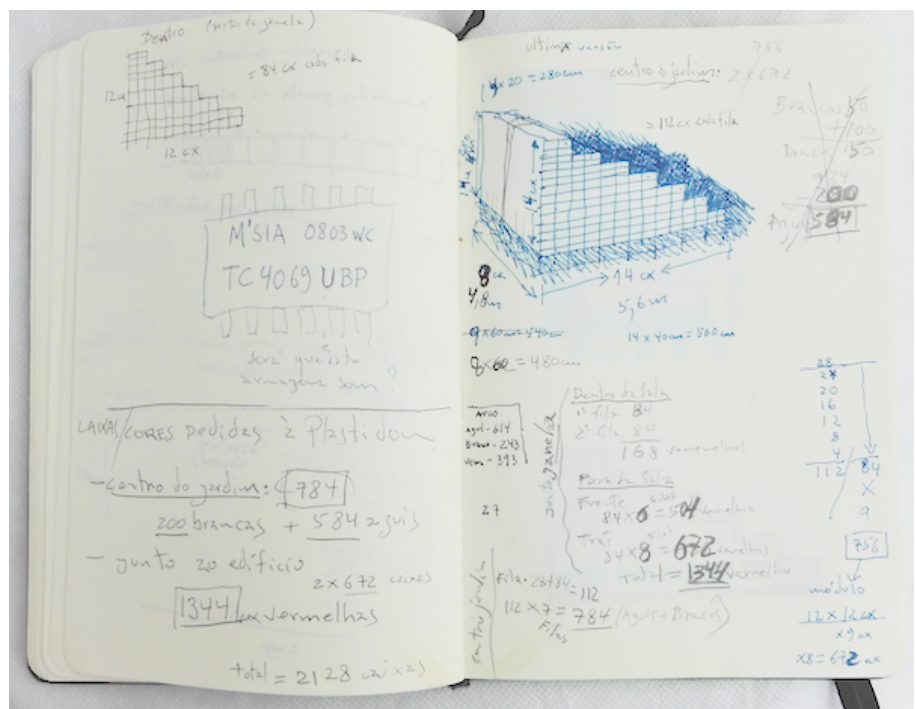 Dentro (perto da janela)
= 84 cx cada fila
12 cx
12 cx
M'SIA 0803 WC
TC4069 UBP
será que isto
armazena som?
CAIXAS/CORES pedidas à Plastidom
- centro do jardim: 784
200 brancas + 584 azuis
- junto ao edifício
2 x 672 caixas
1344 cx vermelhas
total = 2128 caixas
ultima versão
756
centro do jardim: 2 x 672
14 x 20 = 280 cm
= 112 cx cada fila
Brancos 50
+ 100
150
200
Azul 584
14 cx
8 cx
4,8m
14 cx
5,6 m
9 x 60 cm = 540 cm
14 x 40cm = 560 cm
8 x 60 = 480 cm
azul - 614
Branco - 243
verm - 393
27
junto janela
Dentro da Sala
1ª fila 84
2ª fila 84
168 vermelhos
Fora da Sala
Frente
filas
84 x 6 = 504 vermelho
Trás
84 x 8 = 672 vermelhas
Total = 1344 vermelho
Fila = 28+84 = 112
112 x 7 = 784 (Azuis + Brancos)
Filas
28
24
20
16
12
8
4
112
84
X
9
756
módulo
12 x 12 cx
x 9 cx
x8 = 672 cx